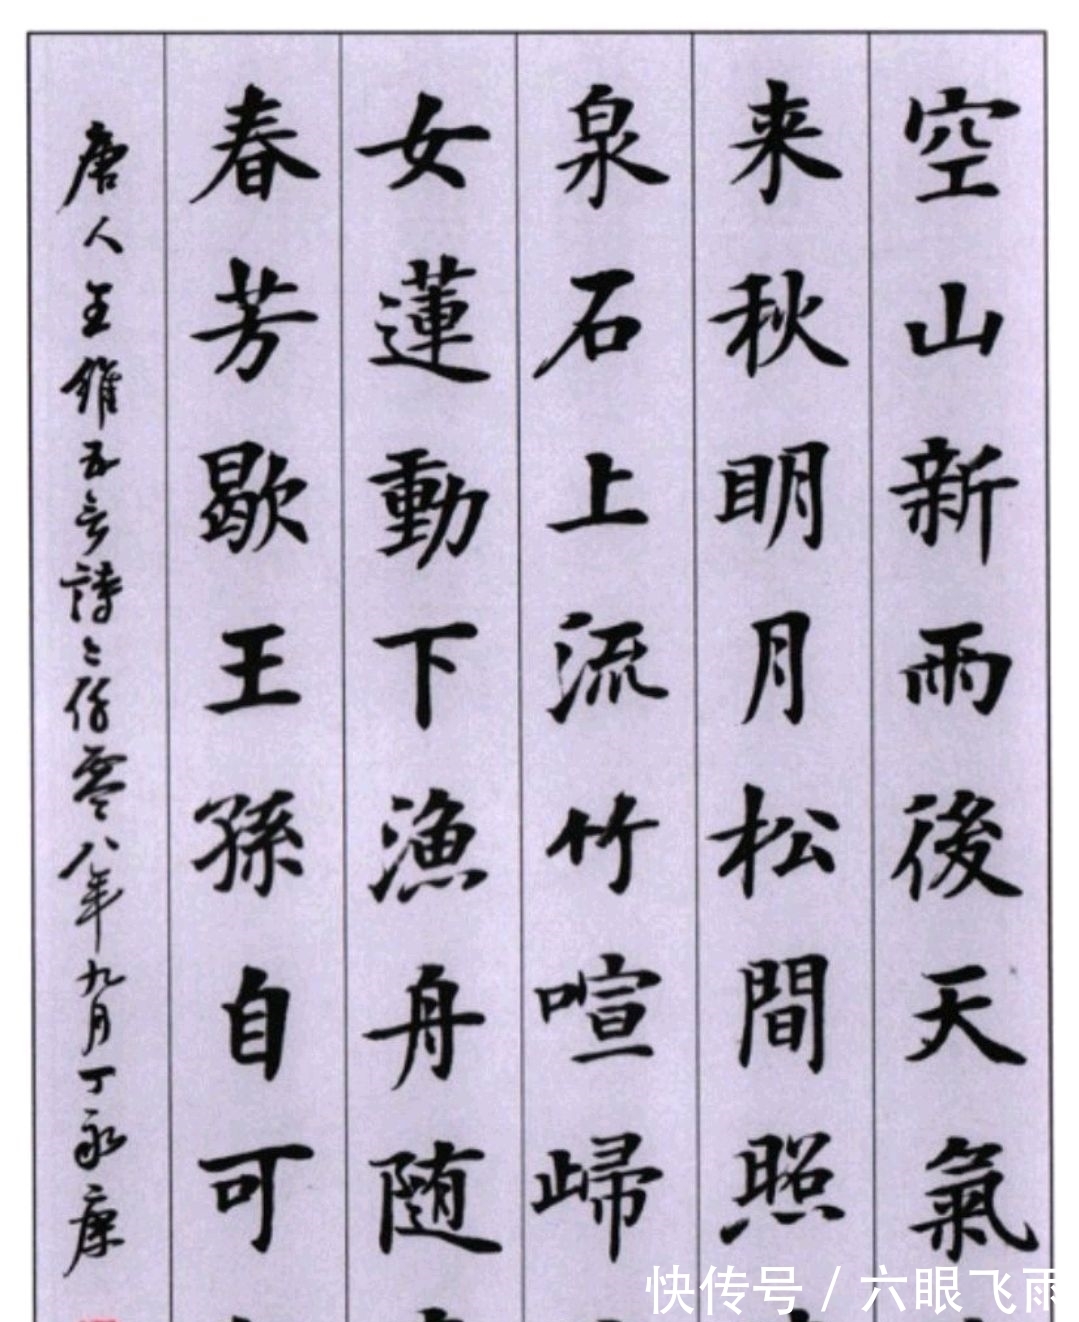 空山新雨後天氣
来秋明月松間照
泉石上流竹喧歸
女蓮動下漁舟随
春芳歇王孫自可
唐人王維五言詩二〻仿零八年九月丁永康
快传号/六眼飞雨